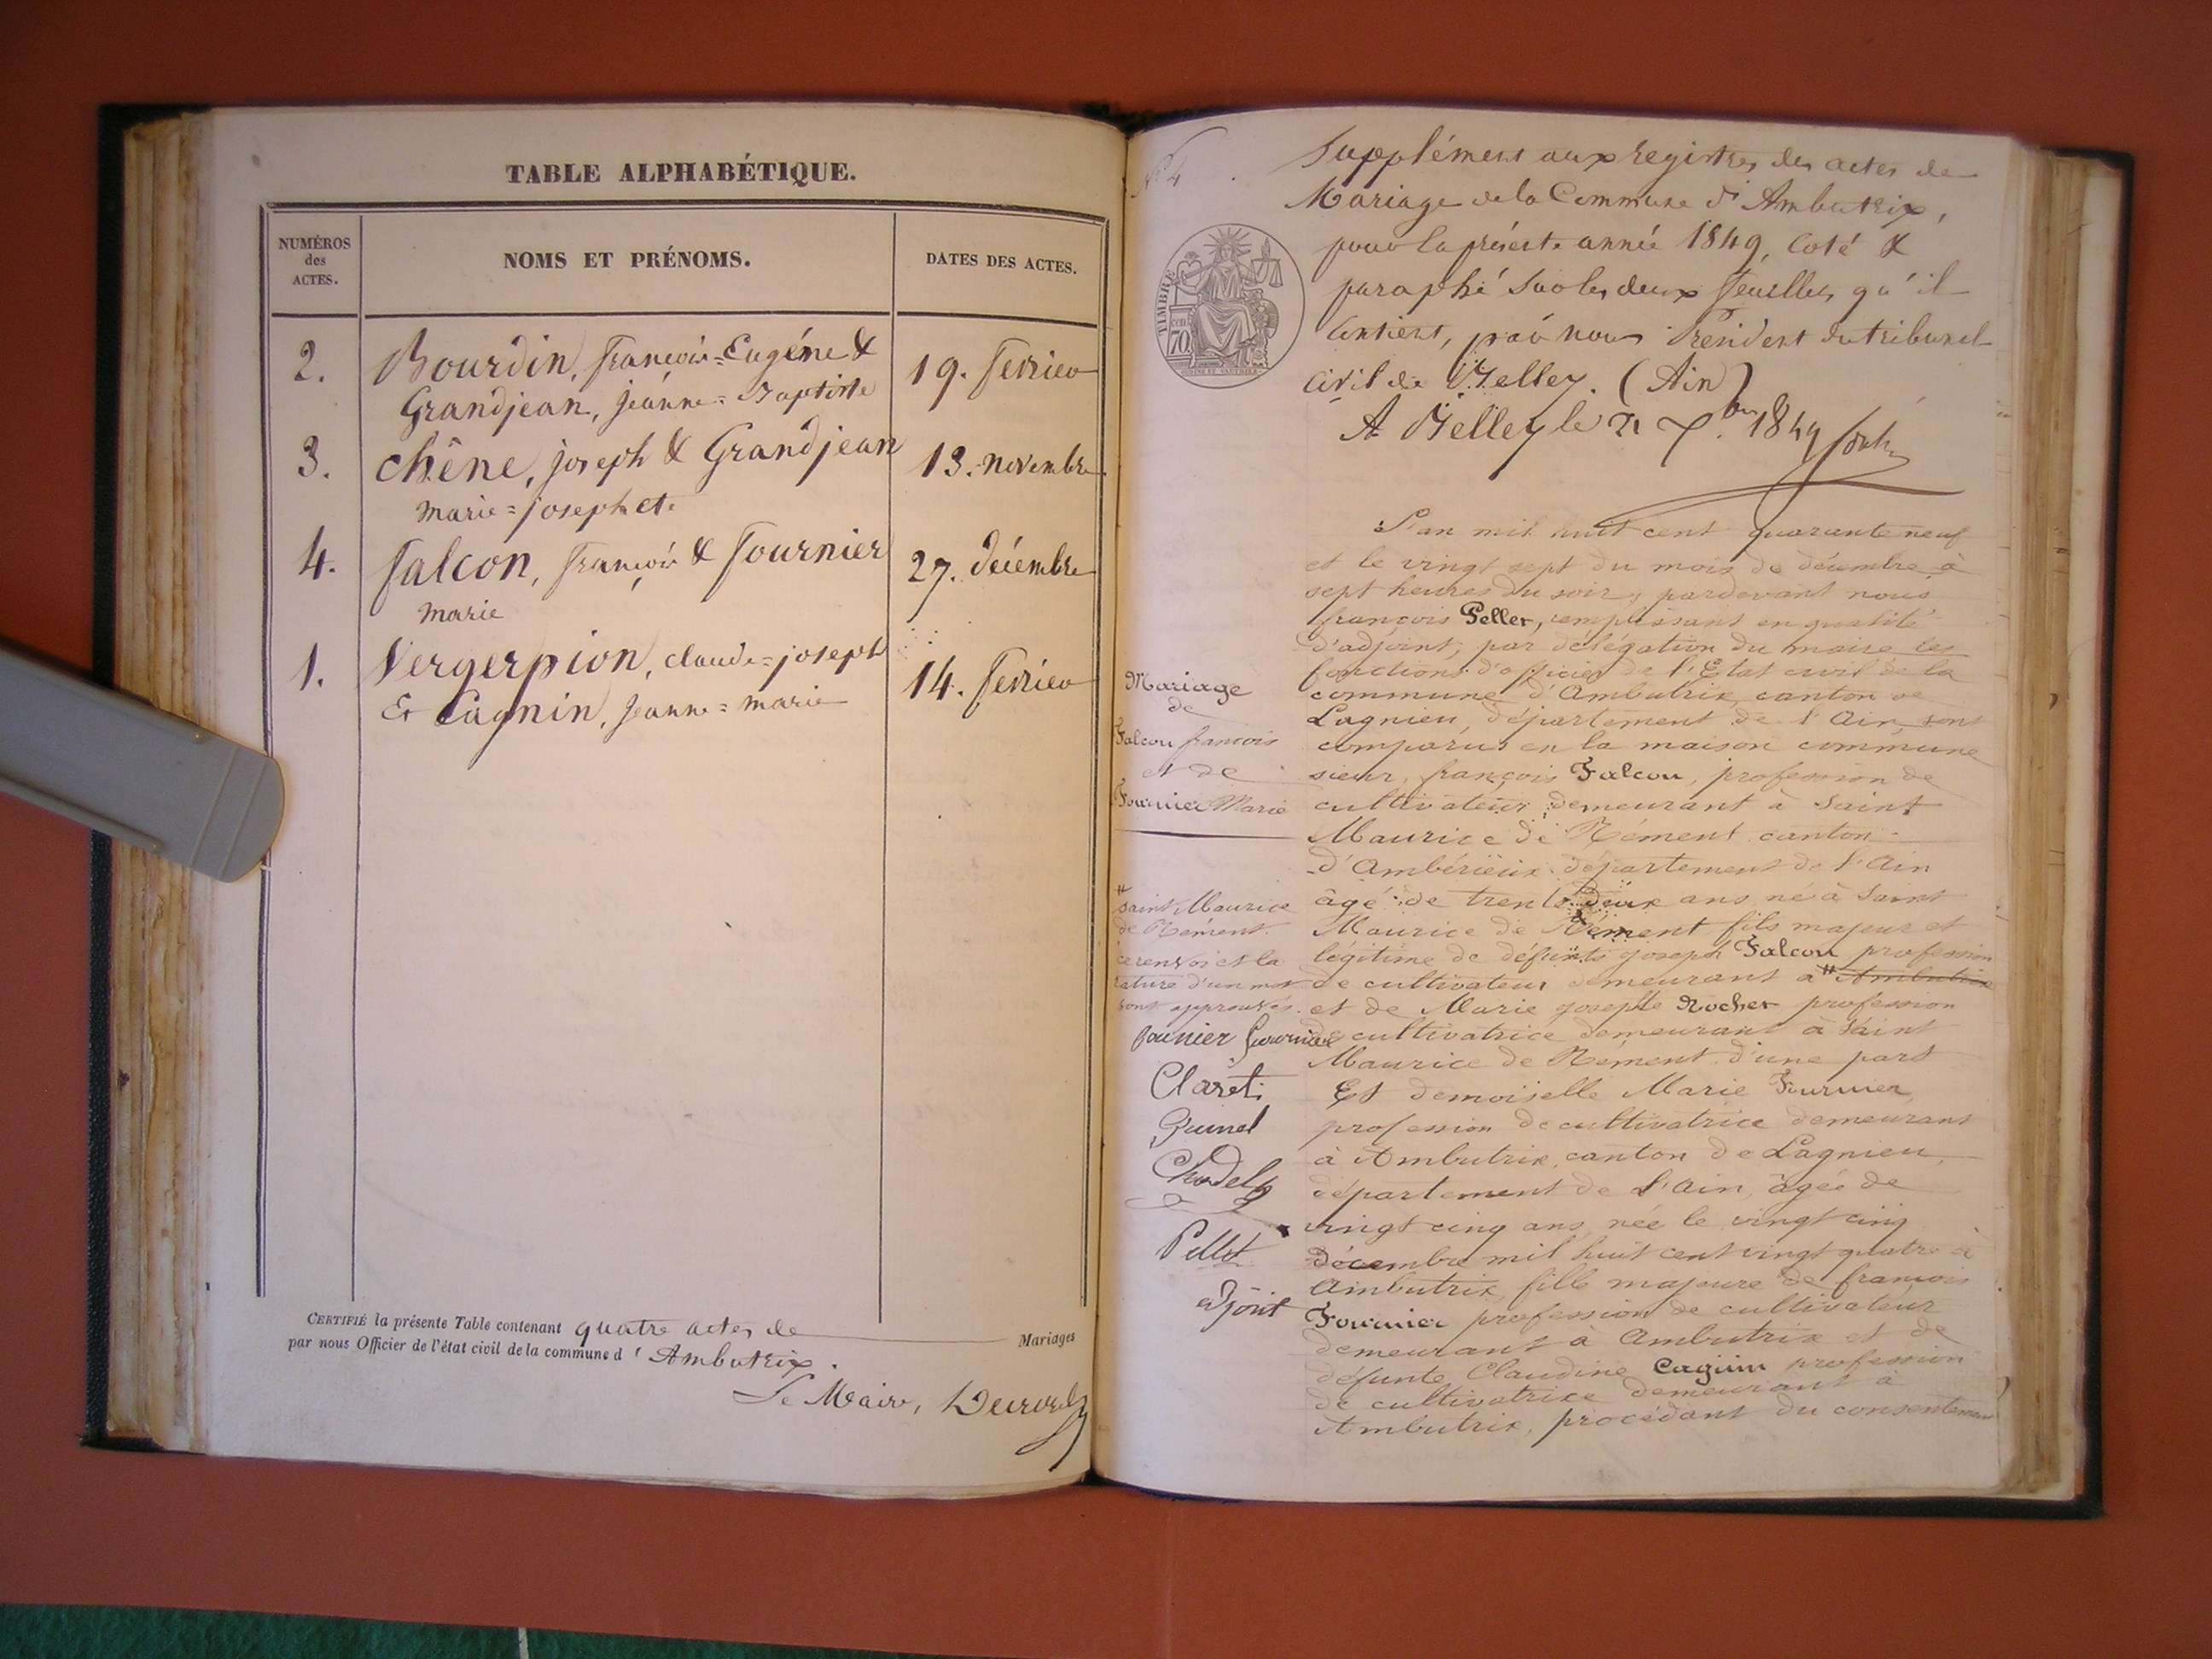 TABLE ALPHABÉTIQUE.
NUMÉROS
des
ACTES.
NOMS ET PRÉNOMS.
DATES DES ACTES.
2. Bourdin, françois=Eugéne & 19. fevrier
Grandjean, jeanne=Baptiste
3. chêne, joseph & Grandjean 13. novembre
marie=josephte.
4. falcon, françois & fournier 27. décembre
marie
1. Vergerpion, claude=joseph 14. fevrier
Et Cagnin, jeanne=marie
CERTIFIÉ la présente Table contenant quatre actes de Mariages
par nous Officier de l'état civil de la commune d'Ambutrix.
Le Maire,
N° 4
Supplément aux registres des actes de
Mariage de la Commune d'Ambutrix,
pour la présente année 1849, Coté &
paraphé sur les deux feuilles qu'il
Contient, par nous Président du tribunal
Civil de Belley. (Ain)
A Belley le 21 7.bre 1849
TIMBRE
70
L'an mil huit cent quarante neuf
et le vingt sept du mois de décembre à
sept heures du soir, pardevant nous
françois Pellet, remplissant en qualité
d'adjoint, par délégation du maire les
fonctions d'officier de l'Etat civil de la
commune d'Ambutrix, canton de
Lagnieu, département de l'Ain, sont
comparus en la maison commune
sieur, françois Falcon, profession de
cultivateur demeurant à Saint
Maurice de Rément canton
d'Ambérieux département de l'Ain
âgé de trente deux ans né à Saint
Maurice de Rément fils majeur et
légitime de défunts joseph Falcon profession
de cultivateur demeurant à # Ambutrix
et de Marie josephte Rocher profession
de cultivatrice demeurant à Saint
Maurice de Rément d'une part
Et demoiselle Marie Fournier
profession de cultivatrice demeurant
à Ambutrix, canton de Lagnieu,
département de l'Ain, âgée de
vingt cinq ans née le vingt cinq
décembre mil huit cent vingt quatre à
Ambutrix, fille majeure de françois
Fournier profession de cultivateur
demeurant à Ambutrix et de
défunte Claudine Cagnin profession
de cultivatrice demeurant à
Ambutrix, procédant du consentement
Mariage
de
Falcon françois
et de
Fournier Marie
# Saint Maurice
de Rément.
ce renvoi et la
rature d'un mot
sont approuvés.
fournier
Claret
Guinet
Chodel
Pellet
adjoint